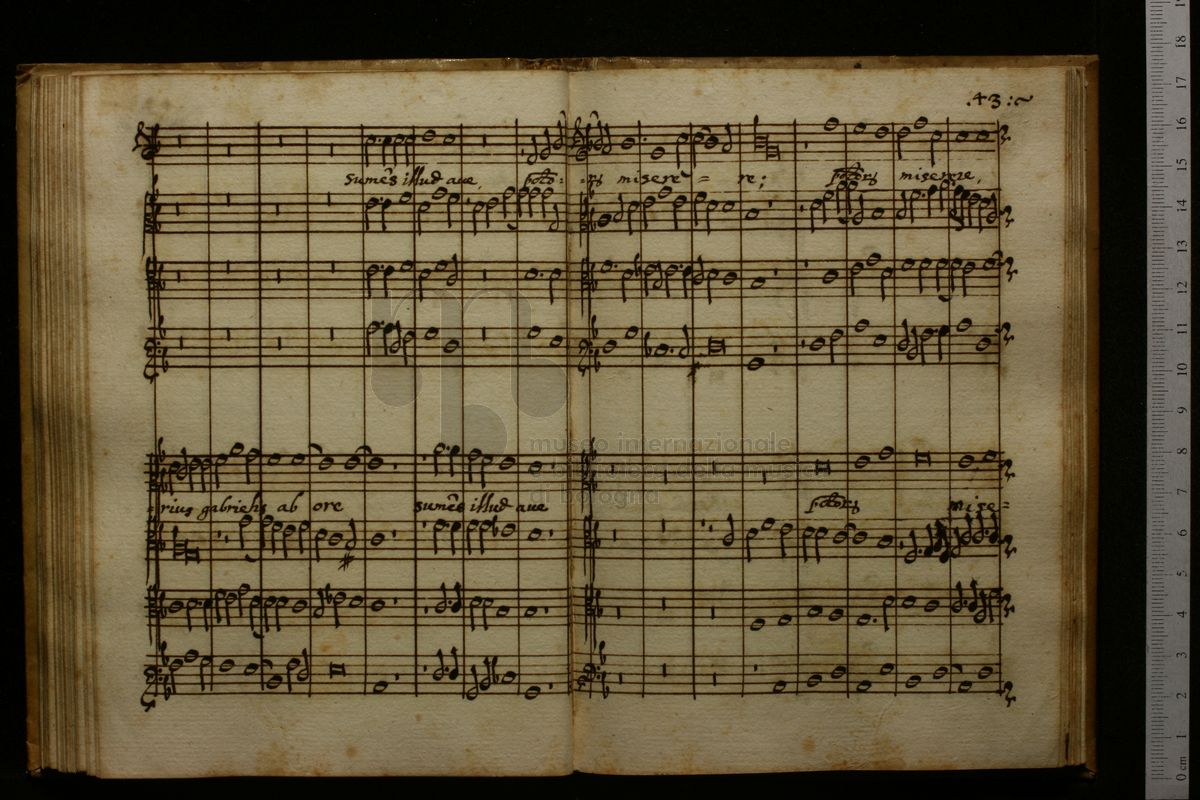 .43:~
sumẽs illud aue, pctõ- -rs miserê = re; pctõrs miserere,
museo internazionale
e biblioteca della musica
di bologna
-rius gabrielis ab ore sumẽs illud aue pctõrs mise=
0 cm 1 2 3 4 5 6 7 8 9 10 11 12 13 14 15 16 17 18